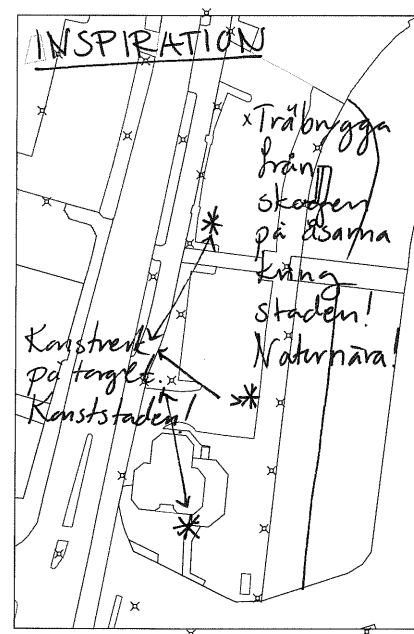 INSPIRATION
x Träbrygga
från
skogen
på åsarna
kring
staden!
Naturnära!
Konstverk
på torget.
Konststaden!